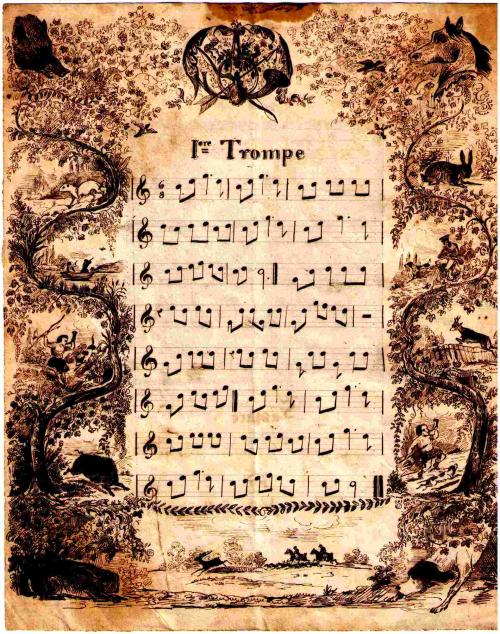 1ère Trompe